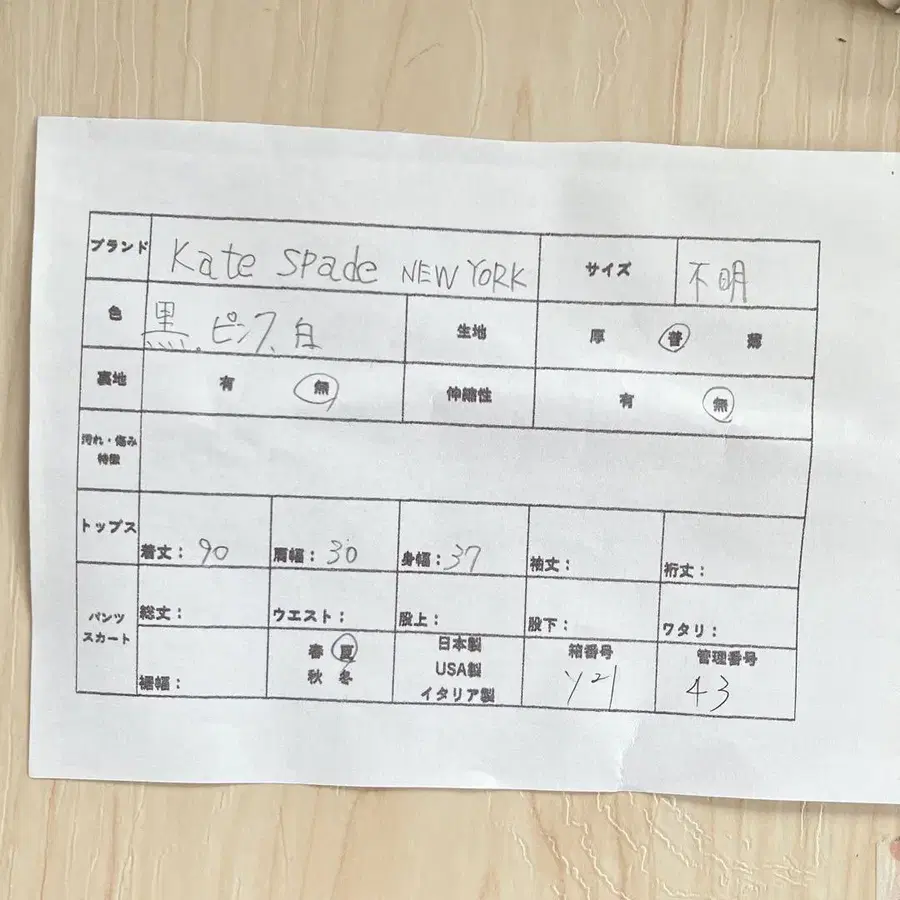 ブランド Kate Spade NEW YORK サイズ 不明
色 黒、ピンク、白 生地 厚 普 薄
裏地 有 無 伸縮性 有 無
汚れ・傷み
特徴
トップス 着丈: 90 肩幅: 30 身幅: 37 袖丈: 裄丈:
パンツ
スカート
総丈: ウエスト: 股上: 股下: ワタリ:
裾幅:
春 夏
秋 冬
日本製
USA製
イタリア製
箱番号
Y21
管理番号
43